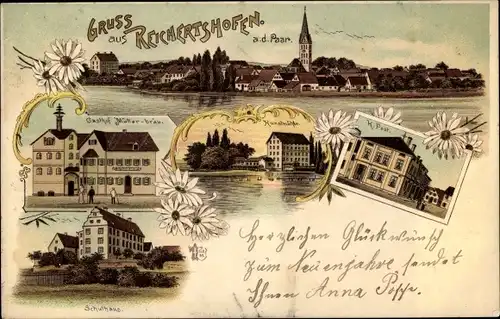 GRUSS
aus REICHERTSHOFEN.
a.d. Paar.
Gasthof Müller-bräu.
Kunstmühle.
K. Post.
Schulhaus.
Herzlichen Glückwunsch
zum Neuenjahre sendet
Ihnen Anna